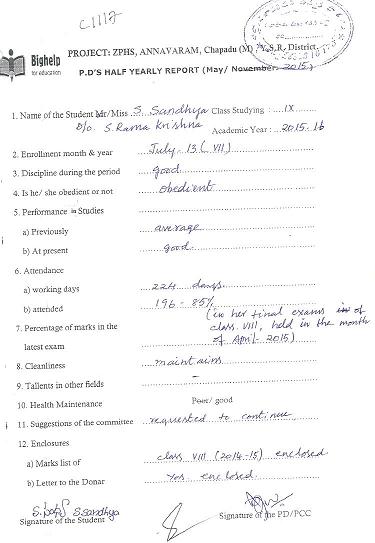 C1112
Bighelp
for education
PROJECT: ZPHS, ANNAVARAM, Chapadu (M) Y.S.R. District.
P.D'S HALF YEARLY REPORT (May/ November. 2015)
1. Name of the Student Mr/Miss S. Sandhya Class Studying : IX
D/o S. Rama Krishna Academic Year : 2015-16
2. Enrollment month & year July-13 (VII)
3. Discipline during the period good
4. Is he/ she obedient or not obedient
5. Performance in Studies
a) Previously average
b) At present good.
6. Attendance
a) working days 224 days.
b) attended 196 - 85%
7. Percentage of marks in the latest exam (in her final exams of class VIII, held in the month of April-2015)
8. Cleanliness maintains
9. Tallents in other fields -
10. Health Maintenance Poor/ good
11. Suggestions of the committee requested to continue
12. Enclosures
a) Marks list of class VIII (2014-15) enclosed
b) Letter to the Donar Yes enclosed.
S. Sandhya
Signature of the Student
Signature of the PD/PCC